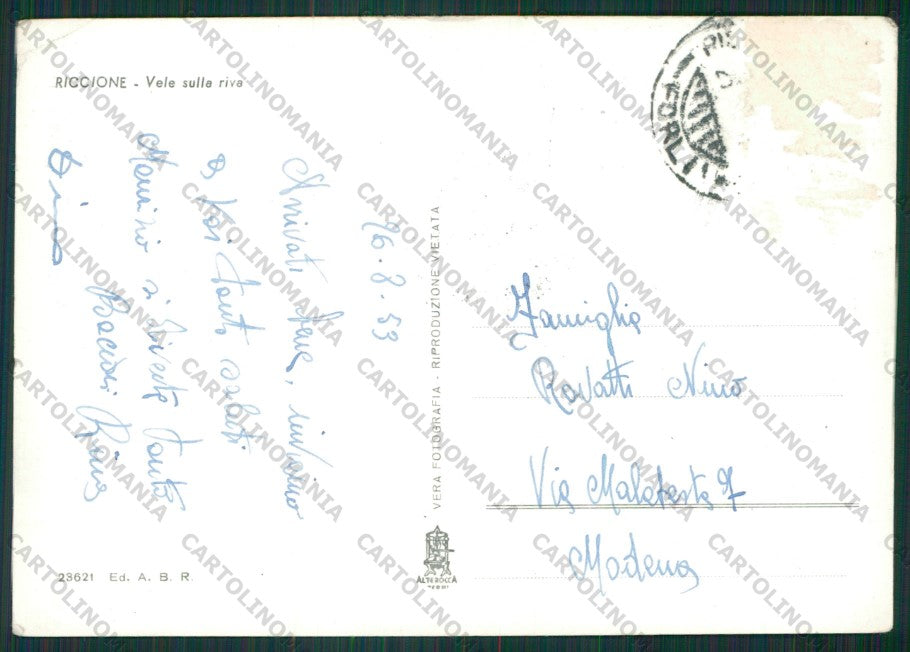 RICCIONE - Vele sulla riva
16.8.53
Arrivati bene, inviamo
a Voi tanti saluti
si diverte tanto
Bacioni
VERA FOTOGRAFIA - RIPRODUZIONE VIETATA
FORLI
Famiglia
Rovatti Nino
Via Malatesta 7
Modena
23621 Ed. A. B. R.
ALTEROCCA
TERNI
CARTOLINOMANIA